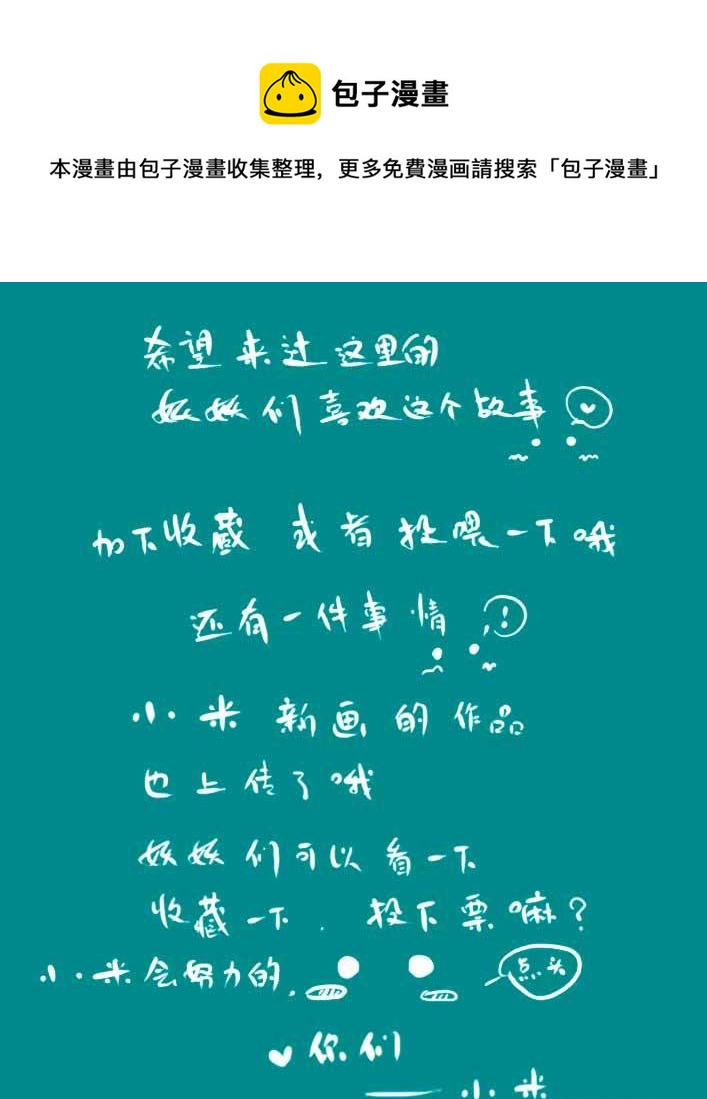 包子漫畫
本漫畫由包子漫畫收集整理，更多免費漫画請搜索「包子漫畫」
希望来过这里的
妖妖们喜欢这个故事
加下收藏 或者投喂一下哦
还有一件事情！
小米新画的作品
也上传了哦
妖妖们可以看一下
收藏一下．投下票嘛？
小米会努力的．
点头
你们
——小米